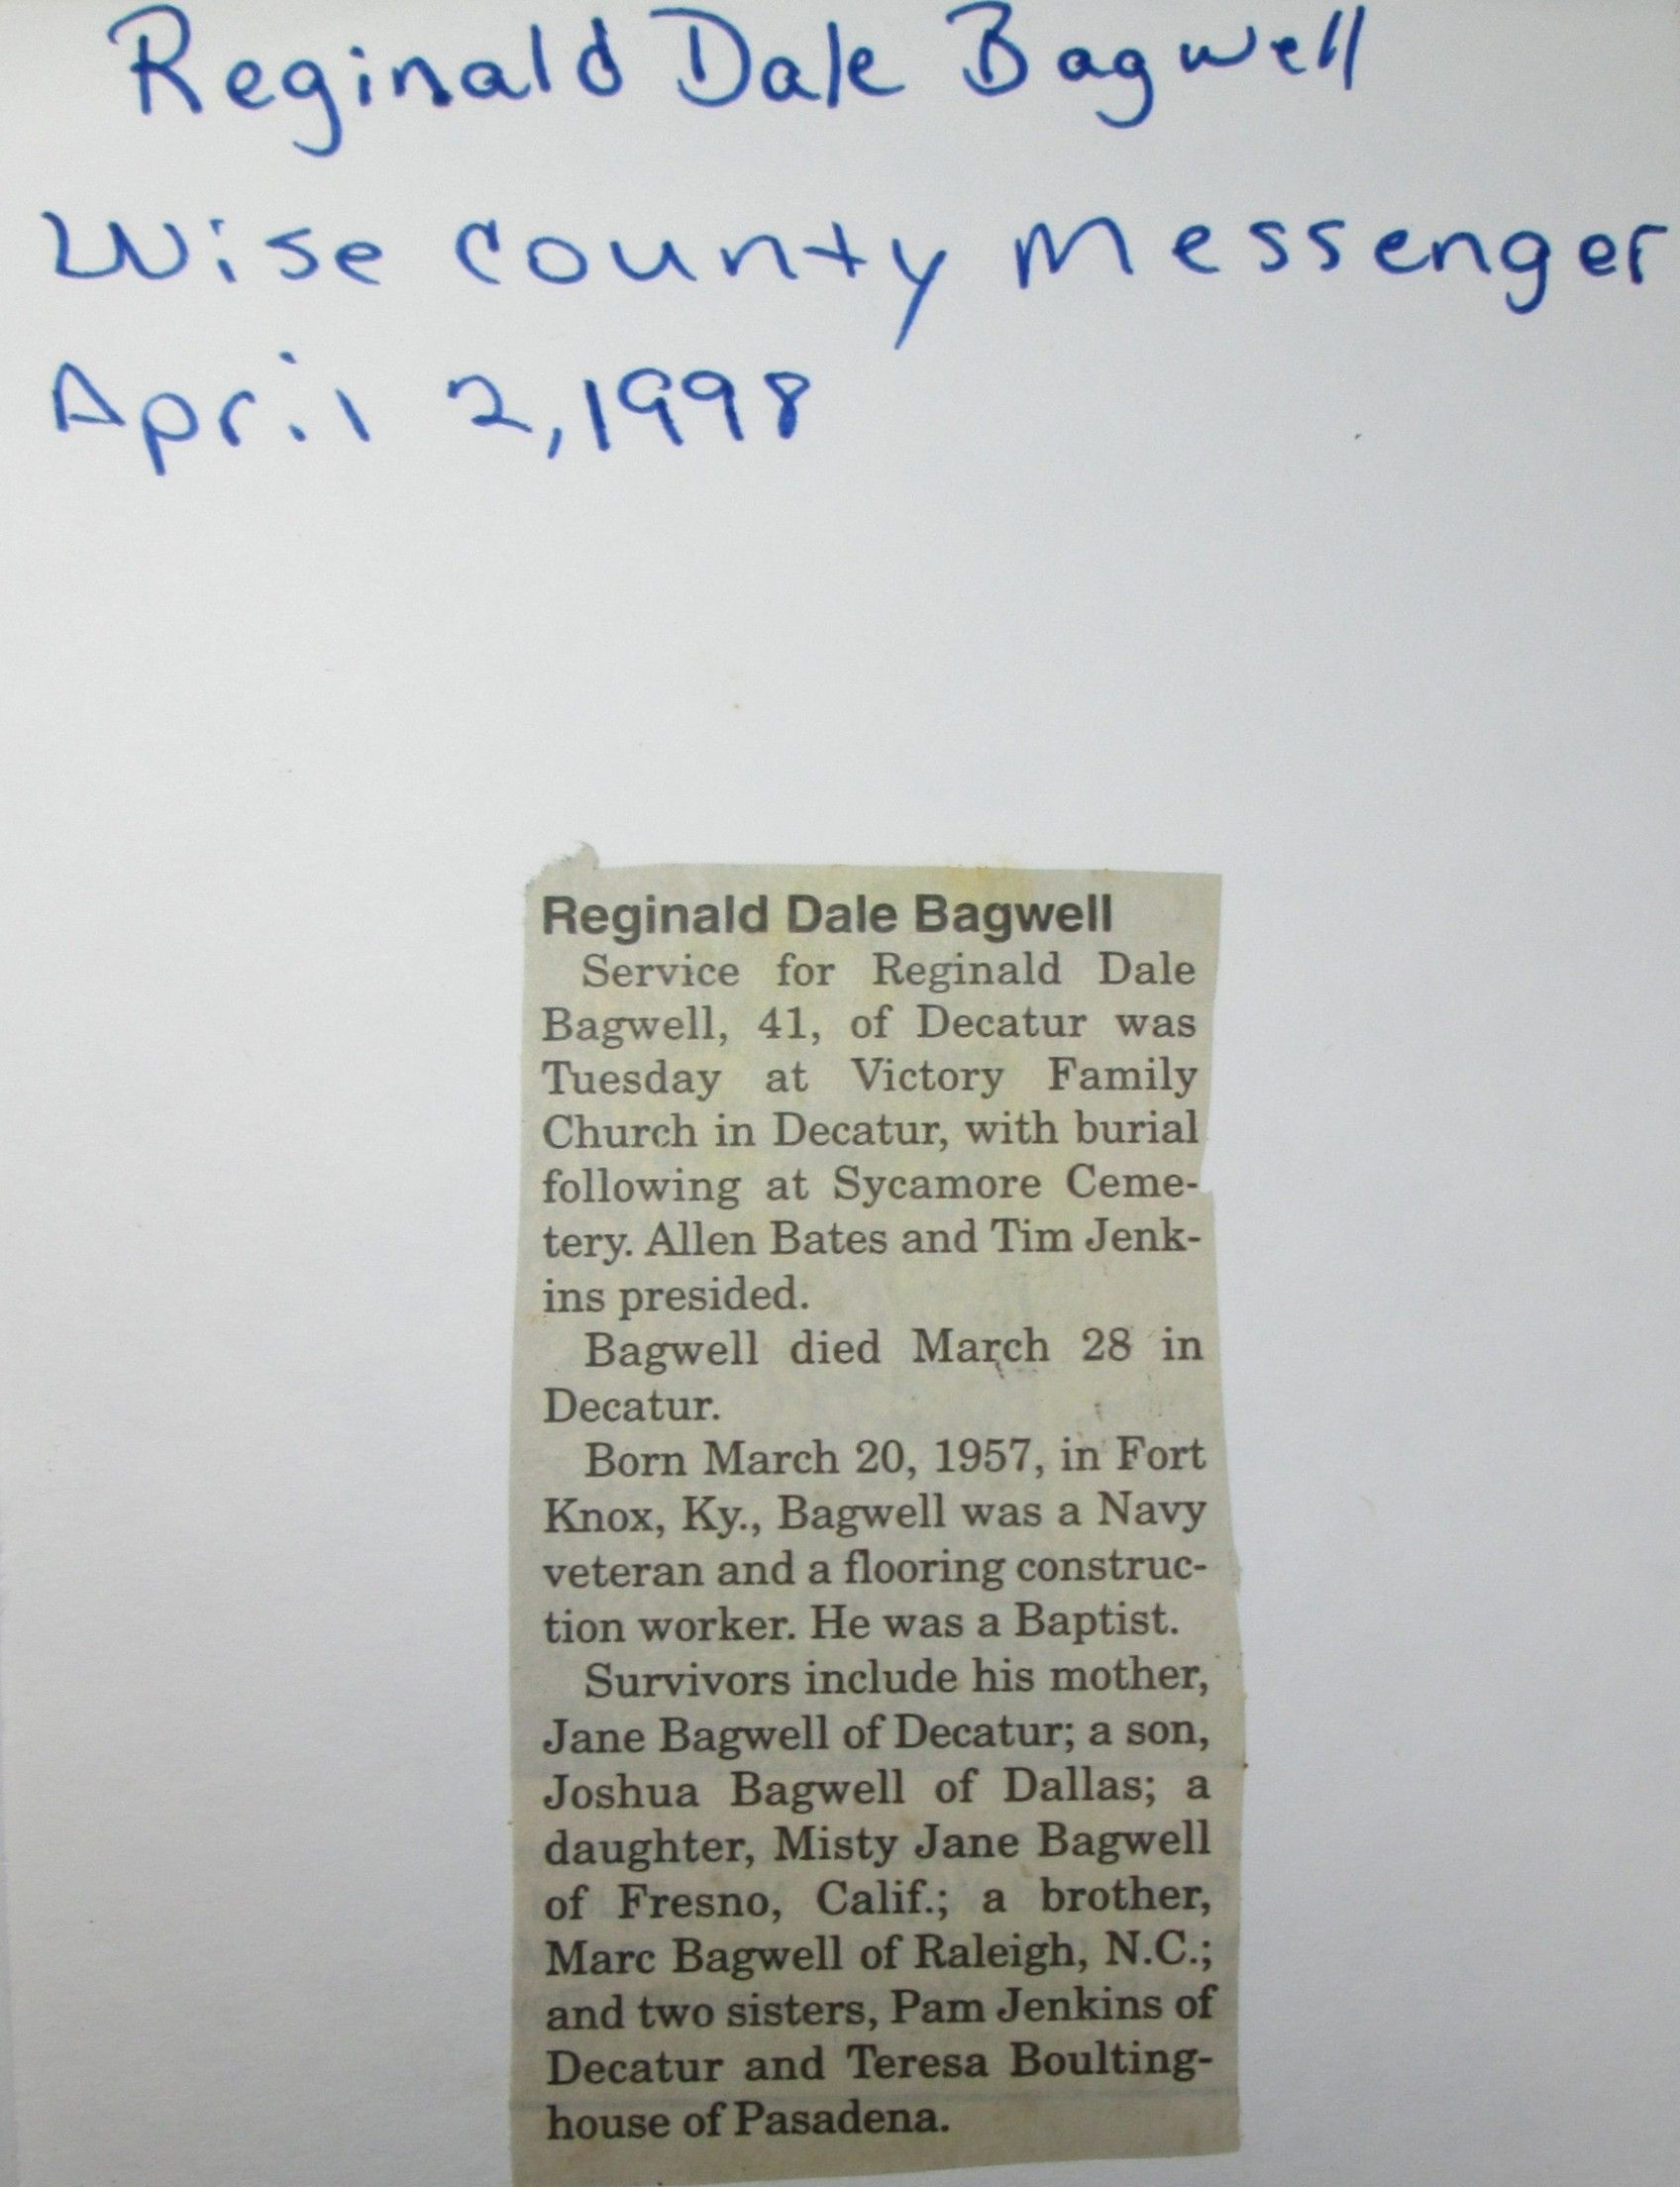 Reginald Dale Bagwell
Wise County Messenger
April 2, 1998
Reginald Dale Bagwell
Service for Reginald Dale
Bagwell, 41, of Decatur was
Tuesday at Victory Family
Church in Decatur, with burial
following at Sycamore Ceme-
tery. Allen Bates and Tim Jenk-
ins presided.
Bagwell died March 28 in
Decatur.
Born March 20, 1957, in Fort
Knox, Ky., Bagwell was a Navy
veteran and a flooring construc-
tion worker. He was a Baptist.
Survivors include his mother,
Jane Bagwell of Decatur; a son,
Joshua Bagwell of Dallas; a
daughter, Misty Jane Bagwell
of Fresno, Calif.; a brother,
Marc Bagwell of Raleigh, N.C.;
and two sisters, Pam Jenkins of
Decatur and Teresa Boulting-
house of Pasadena.